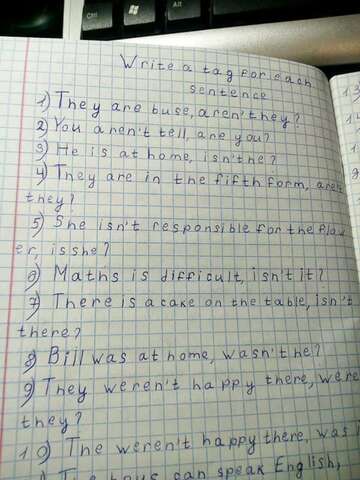 Win
Ctrl
Alt
Write a tag for each
sentence
1) They are buse, aren't they?
2) You aren't tell, are you?
3) He is at home, isn't he?
4) They are in the fifth form, aren
they?
5) She isn't responsible for the
er, is she?
6) Maths is difficult, isn't it?
7) There is a cake on the table, isn't
there?
8) Bill was at home, wasn't he?
9) They weren't happy there, were
they?
10) The weren't happy there, was
can speak English,